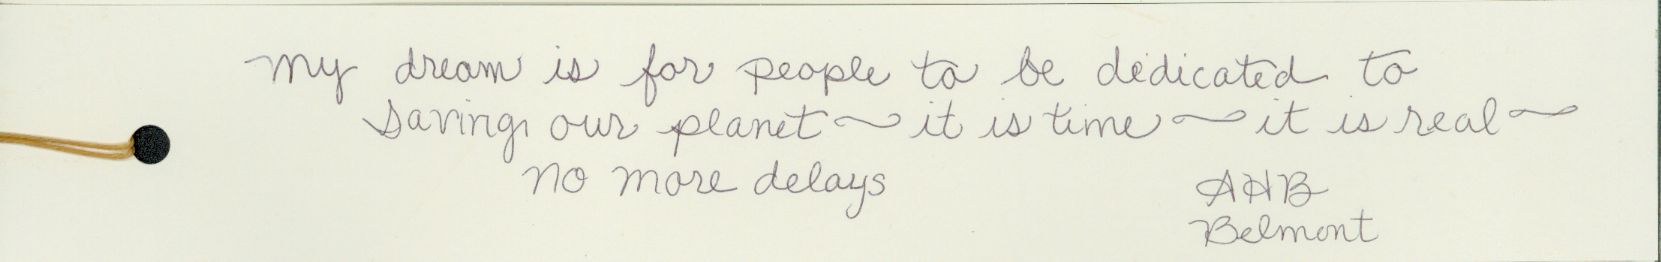 My dream is for people to be dedicated to
saving our planet ~ it is time ~ it is real ~
no more delays
AHB
Belmont